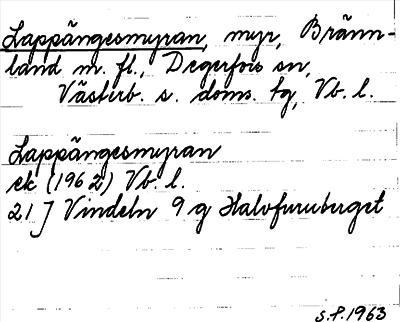 Lappängesmyran, myr, Bränn-
land m. fl., Degerfors sn,
Västerb. s. doms. tg, Vb. l.
Lappängesmyran
ek (1962) Vb. l.
21 J Vindeln 9 g Halvfuruberget
S.P. 1963